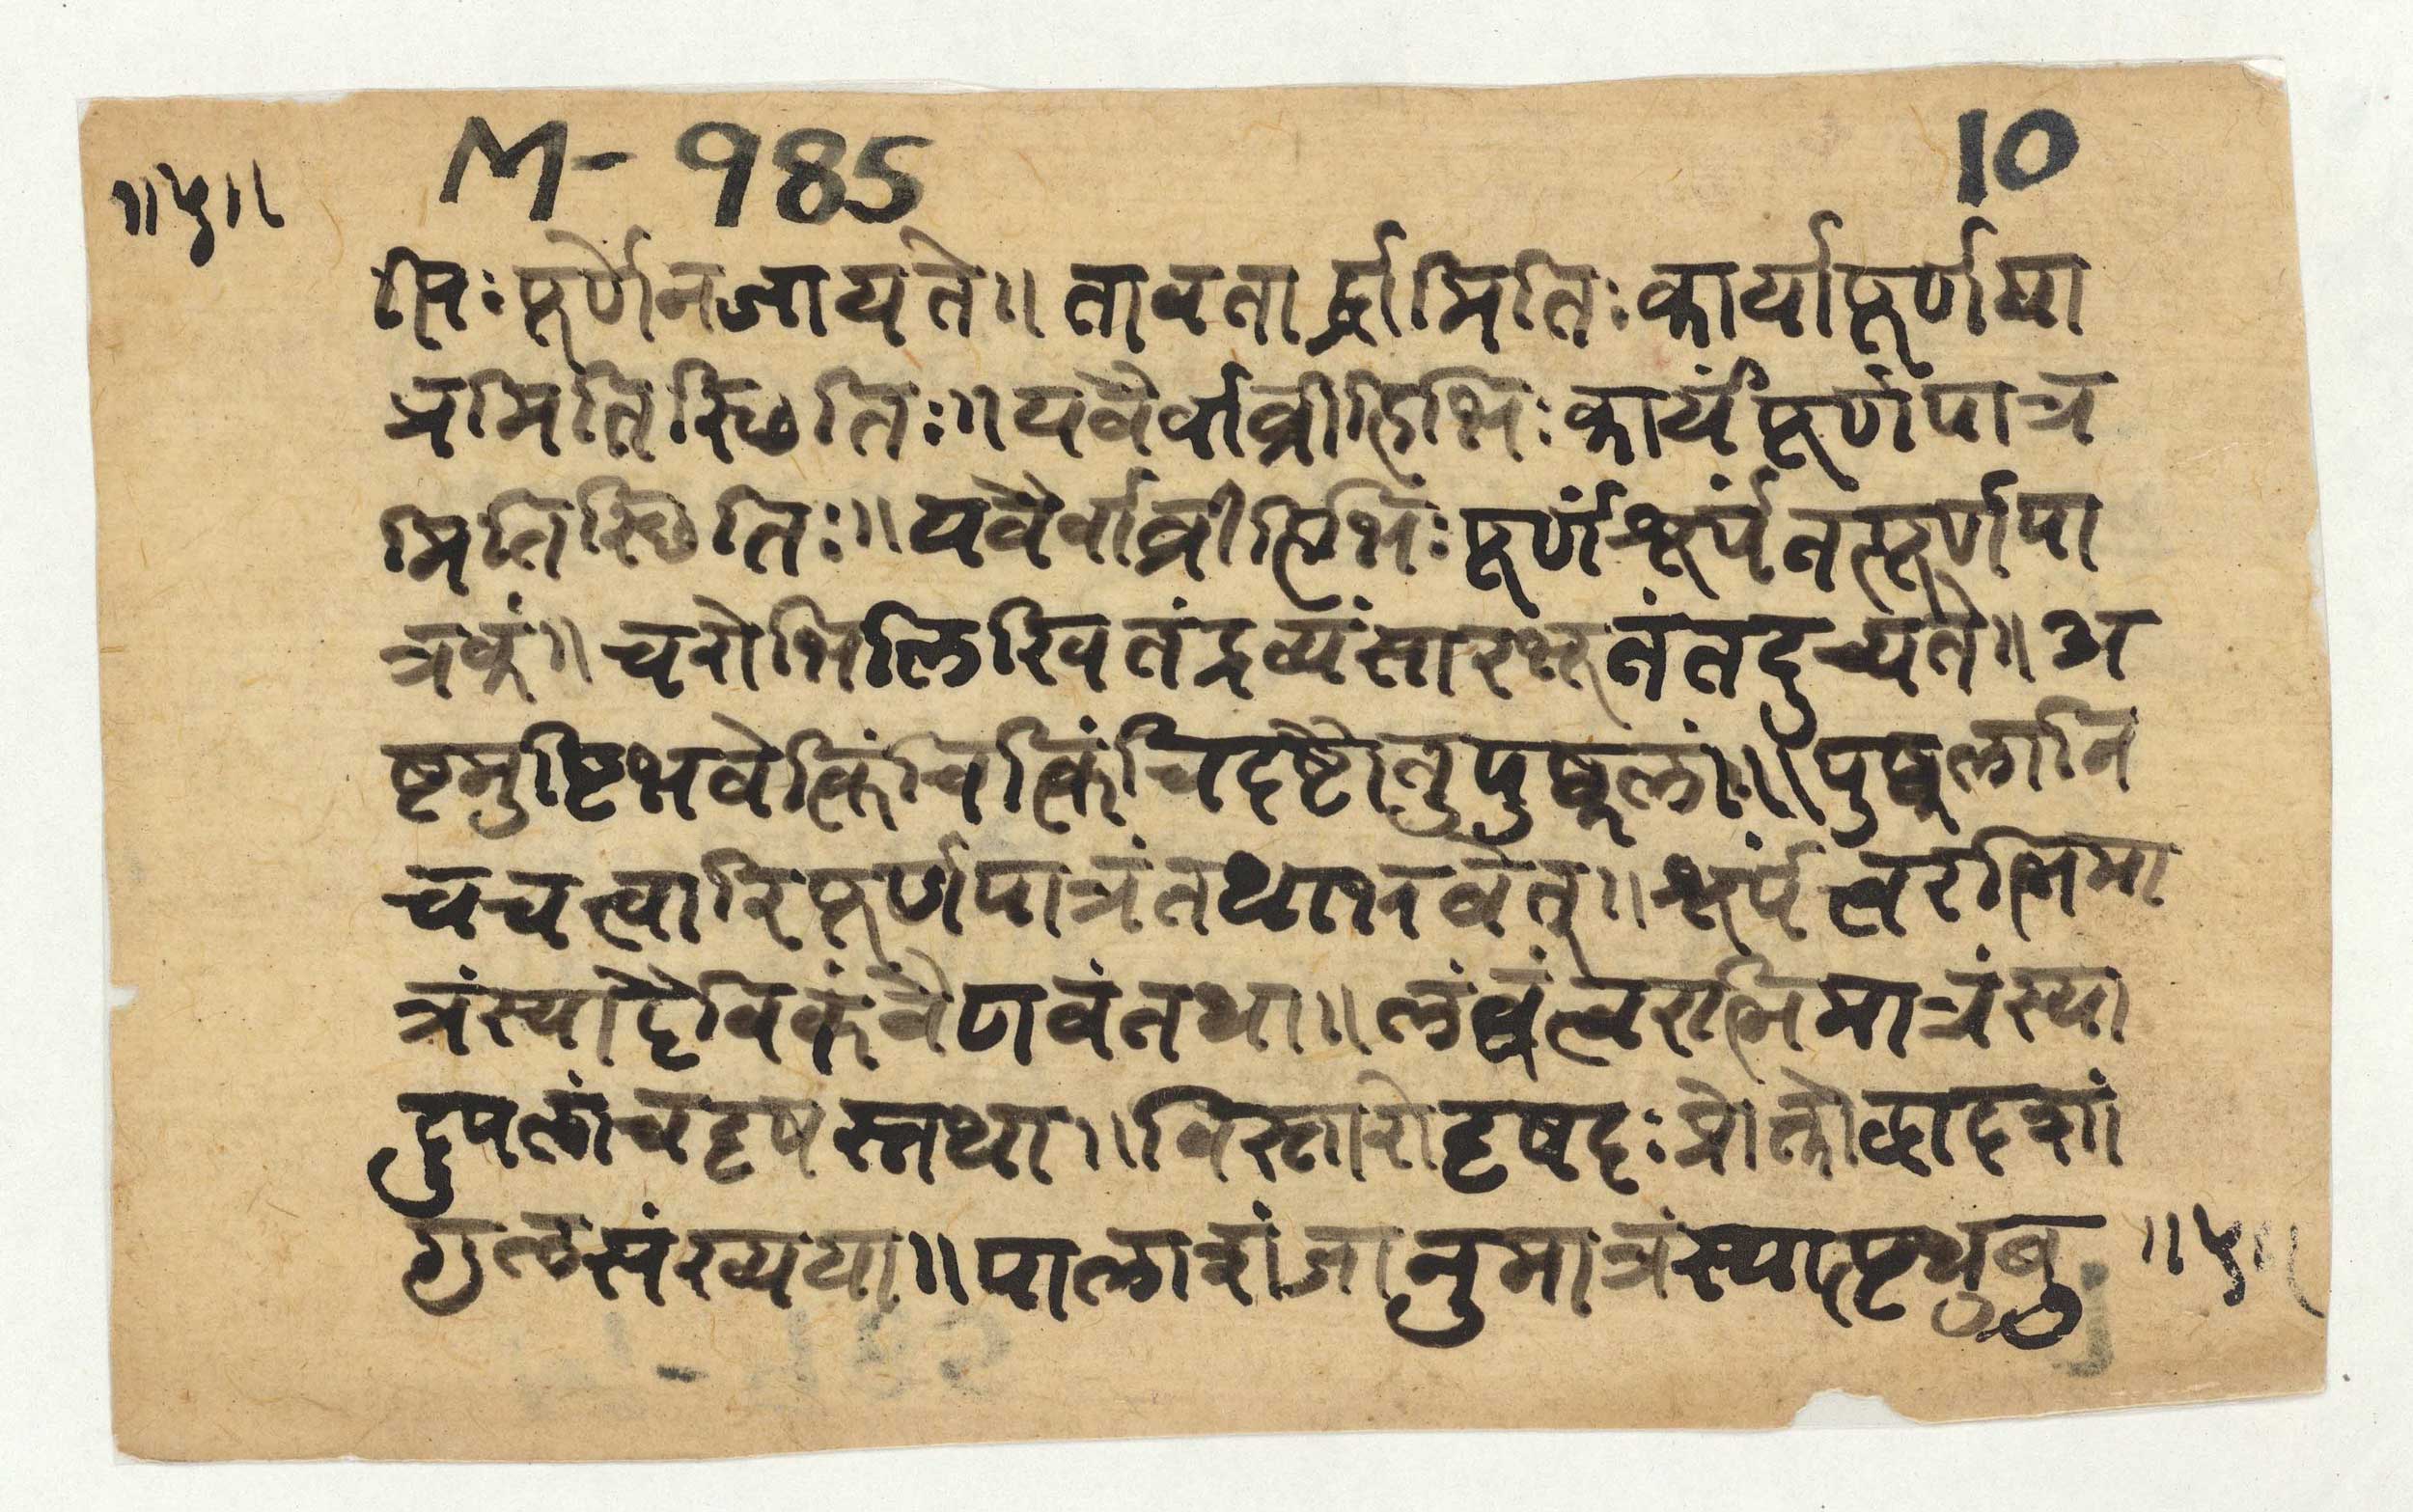 M-985 10
॥५॥
प्तिः पूर्णेन जायते ॥ तावता र्द्रामितिः कार्या पूर्णपा
त्रमिति स्छितिः ॥ यवैर्वा व्रीहिभिः कार्यं पूर्णपात्र
मिति स्छितिः ॥ यवैर्वा व्रीहिभिः पूर्णं शूर्पं तत्पूर्णपा
त्रकं ॥ चरोभिलिखितं द्रव्यं सारभूतं तदुच्यते ॥ अ
ष्टमुष्टि भवेत्किंचित्किंचिदष्टौ तु पुष्कलां ॥ पुष्कलानि
च चत्वारि पूर्णपात्रं तथा भवेत् ॥ शूर्पं त्वरत्निमा
त्रं स्यादैविकं वैणवं तथा ॥ लंबं त्वरात्निमात्रं स्या
दुपलां च दृषस्तथा ॥ विस्तारो दृषदः प्रोक्तो द्वादशां
गुलसंख्यया ॥ पालाशं जानुमात्रं स्यात्पृथुबु
॥५॥